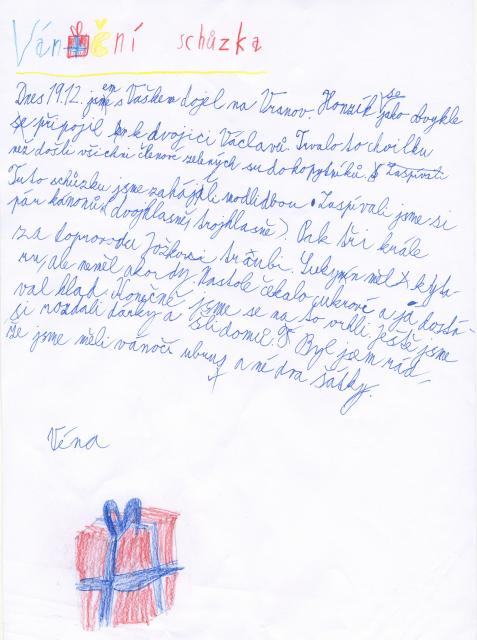 Vánoční schůzka
Dnes 19.12. jsme s Vaškem dojel na Vranov. Honzík se jako obvykle
připojil k dvojici Václavů. Trvalo to chvilku
než došli všichni členové zelených sudokopytníků. Zaspívali
Tuto schůzku jsme zahájili modlidbou. Zaspívali jsme si
pár kánonů (dvojhlasně, trojhlasně). Pak tři krále
za doprovodu Jožkovi trubi. měl kyta-
ru, ale neměl akordy. Nastole čekalo cukrové a já dostá-
val hlad. Konečně jsme se na to vrhli. Ještě jsme
si rozdali dárky a šli domů. Byl jsem rád,
že jsme měli vánočí ubrus a né dva šátky.
Véna